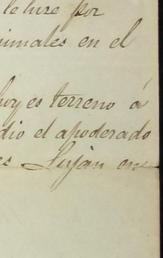 le hire por
animales en el
luy es terreno á
dio el apoderado
es Luján en